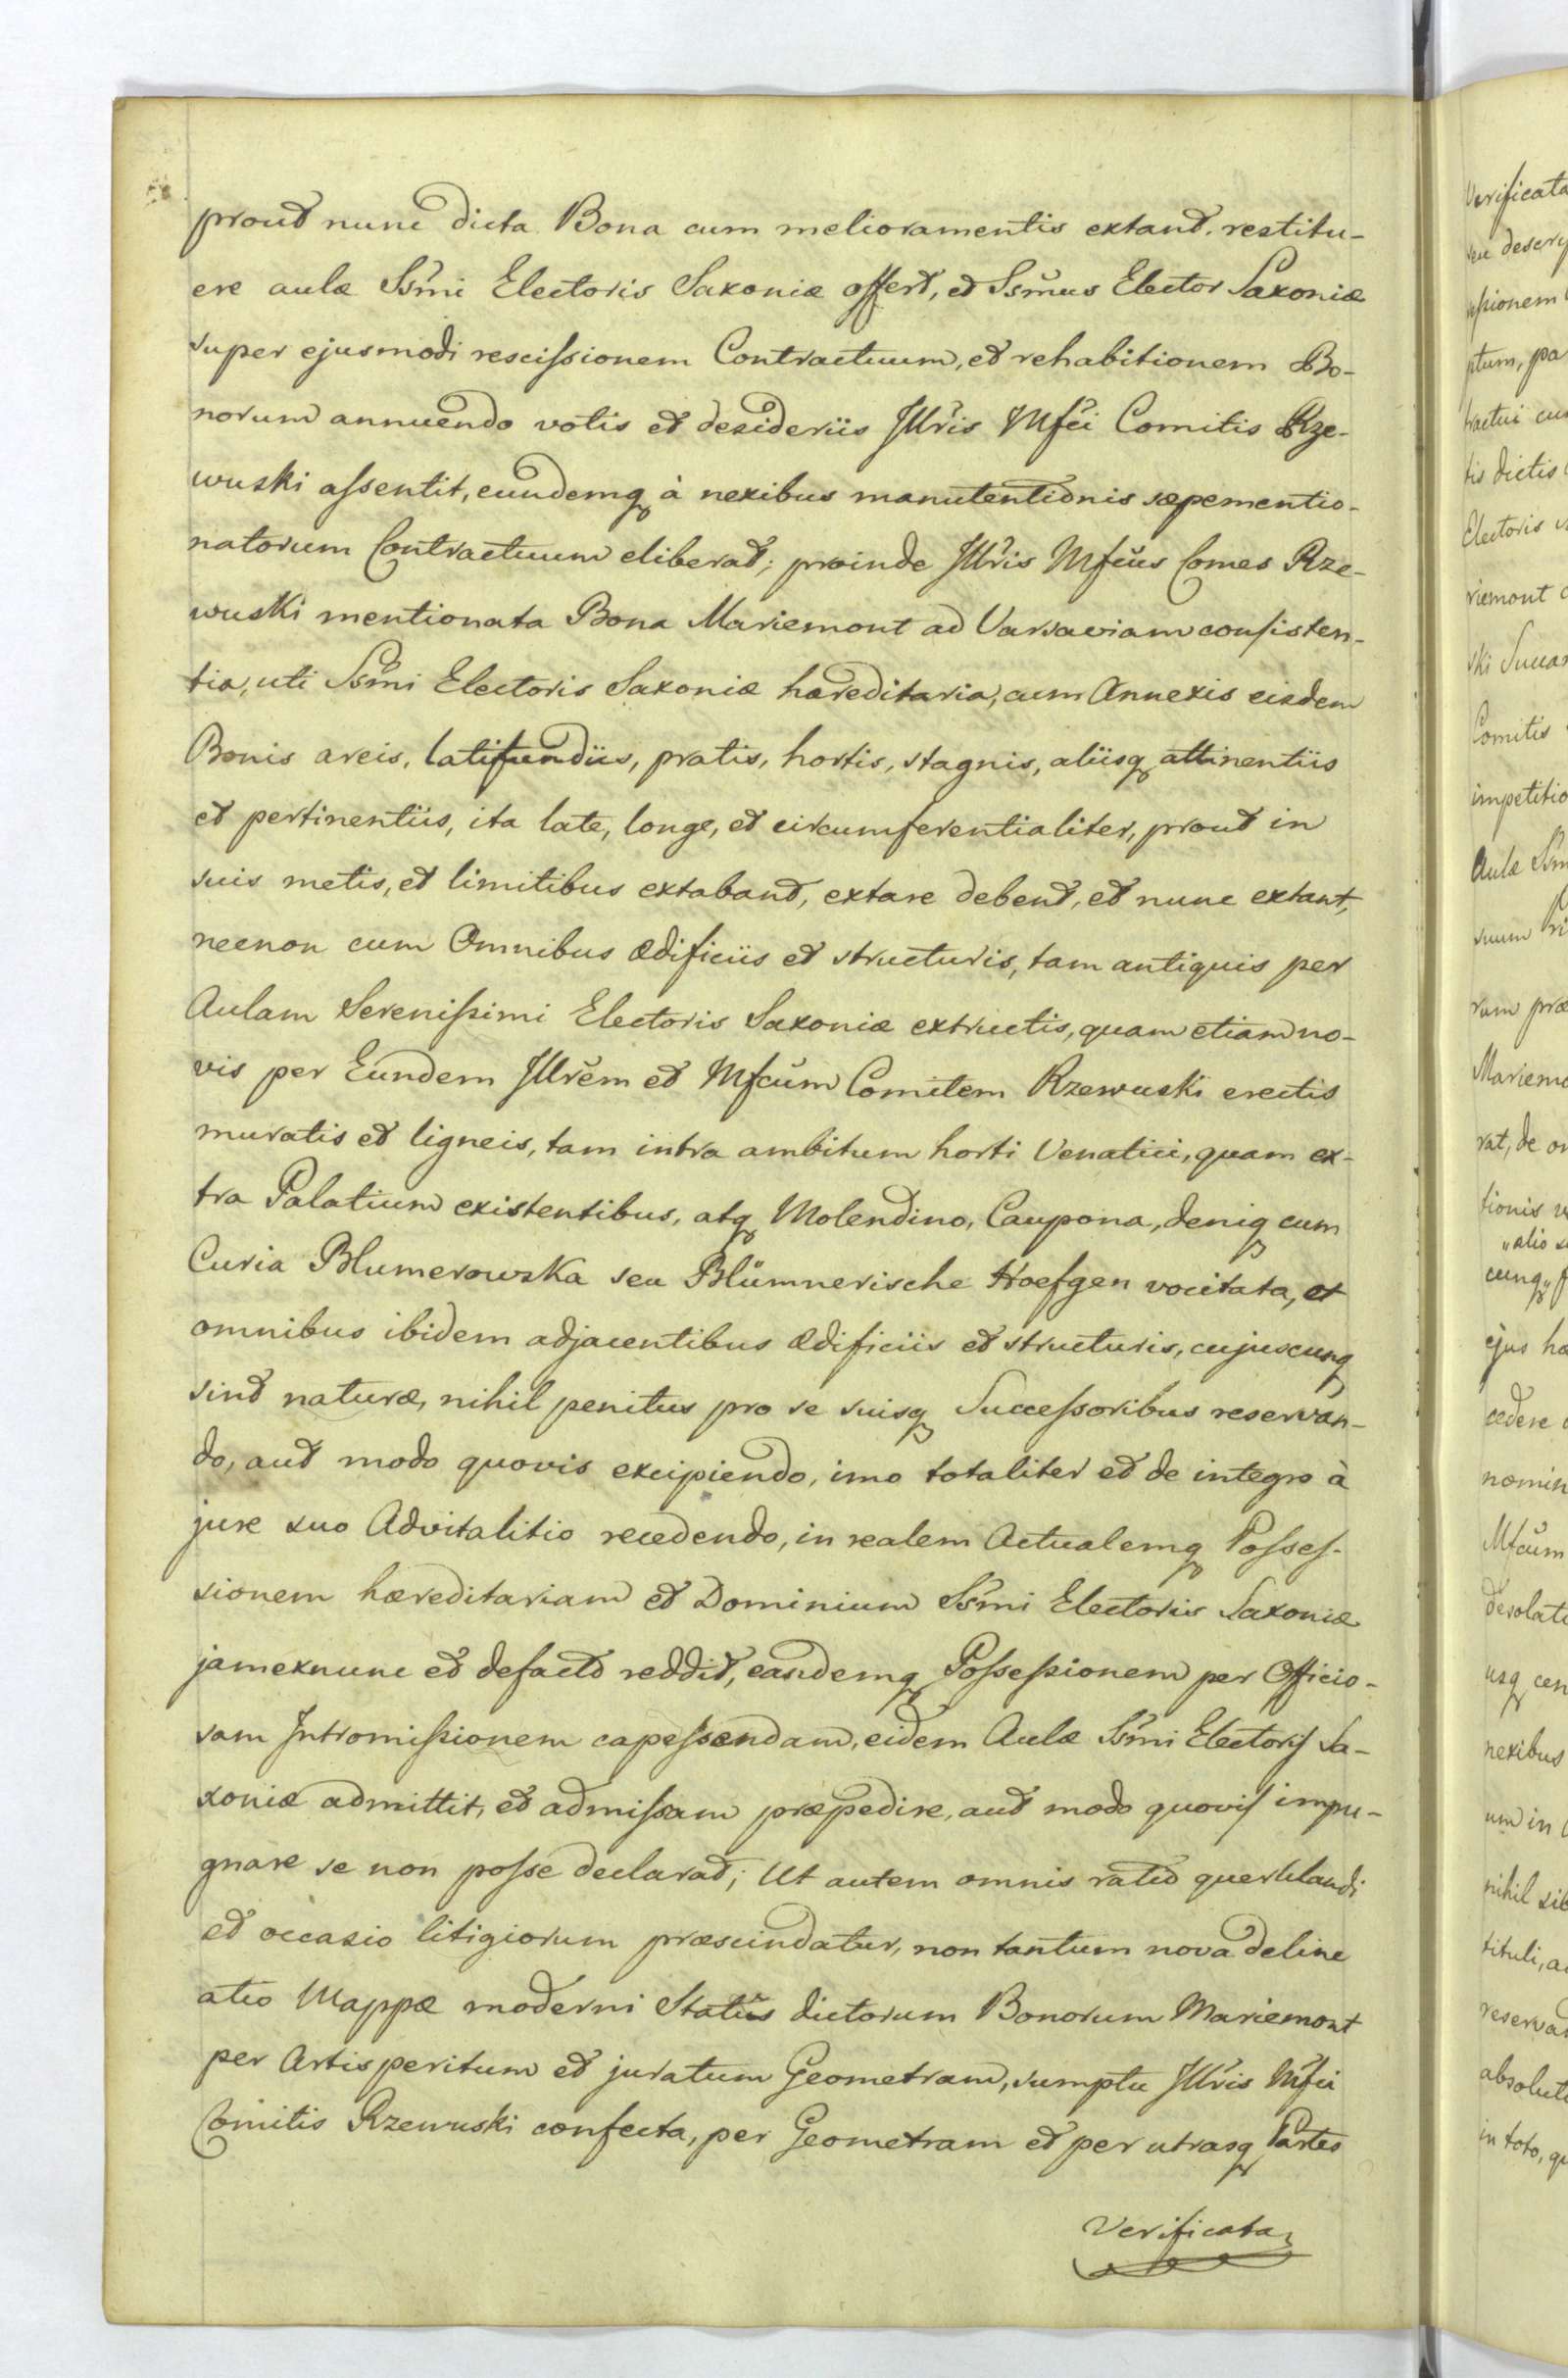 prout nunc dicta Bona cum melioramentis extant, restitu-
ere aulæ Ssm̃i Electoris Saxoniæ offert, et Ssm̃us Elector Saxoniæ
super ejusmodi resciſsionem Contractuum, et rehabitionem Bo-
norum annuendo votis et desideriis Jllr̃is Mfc̃i Comitis Rze-
wuski aſsentit, eundemq à nexibus manutentionis sæpementio-
natorum Contractuum eliberat; proinde Jllr̃is Mfcũs Comes Rze-
wuski mentionata Bona Mariemont ad Varsaviam consisten-
tia, uti Ssm̃i Electoris Saxoniæ hæreditaria, cum Annexis eisdem
Bonis areis, latifundiis, pratis, hortis, stagnis, aliisq attinentiis
et pertinentiis, ita late, longe, et circumferentialiter, prout in
suis metis, et limitibus extabant, extare debent, et nunc extant,
necnon cum Omnibus ædificiis et structuris, tam antiquis per
Aulam Sereniſsimi Electoris Saxoniæ extructis, quam etiam no-
vis per Eundem Jllrẽm et Mfcũm Comitem Rzewuski erectis
muratis et ligneis, tam intra ambitum horti Venatici, quam ex-
tra Palatium existentibus, atq Molendino, Caupona, deniq cum
Curia Blumerowska seu Blümnerische Hoefgen vocitata, et
omnibus ibidem adjacentibus ædificiis et structuris, cujuscunq
sint naturæ, nihil penitus pro se suisq Succeſsoribus reservan-
do, aut modo quovis excipiendo, imo totaliter et de integro à
jure suo Advitalitio recedendo, in realem Actualemq Poſseſ-
sionem hæreditariam et Dominium Ssm̃i Electoris Saxoniæ
jamexnunc et defacto reddit, eandemq Poſseſsionem per Officio-
sam Jntromiſsionem capeſsendam, eidem Aulæ Ssm̃i Electoriſ Sa-
xoniæ admittit, et admiſsam præpedire, aut modo quoviſ impu-
gnare se non poſse declarat; Ut autem omnis ratio querulandi
et occasio litigiorum præscindatur, non tantum nova deline
atio Mappæ moderni Statũs dictorum Bonorum Mariemont
per Artis peritum et juratum Geometram, sumptu Jllr̃is Mfc̃i
Comitis Rzewuski confecta, per Geometram et per utrasq Partes
Verificata